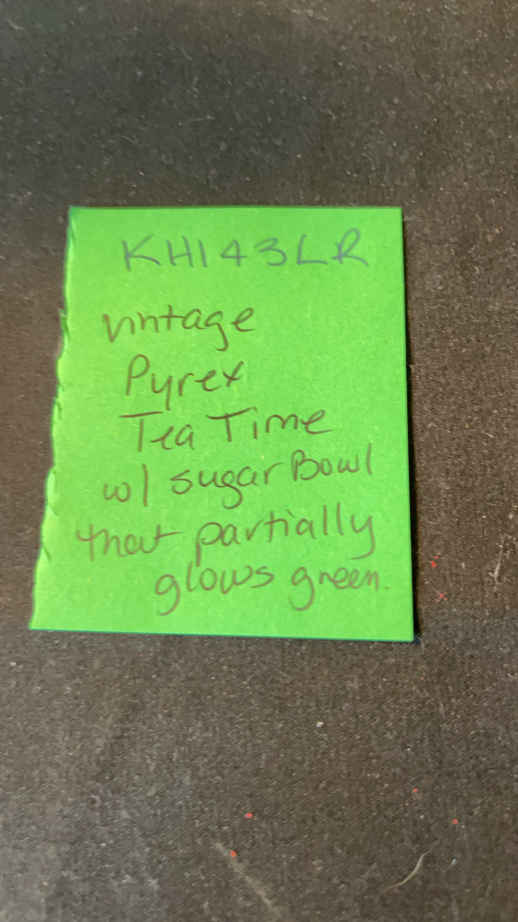 KH143LR
vintage
Pyrex
Tea Time
w/ sugar Bowl
that partially
glows green.